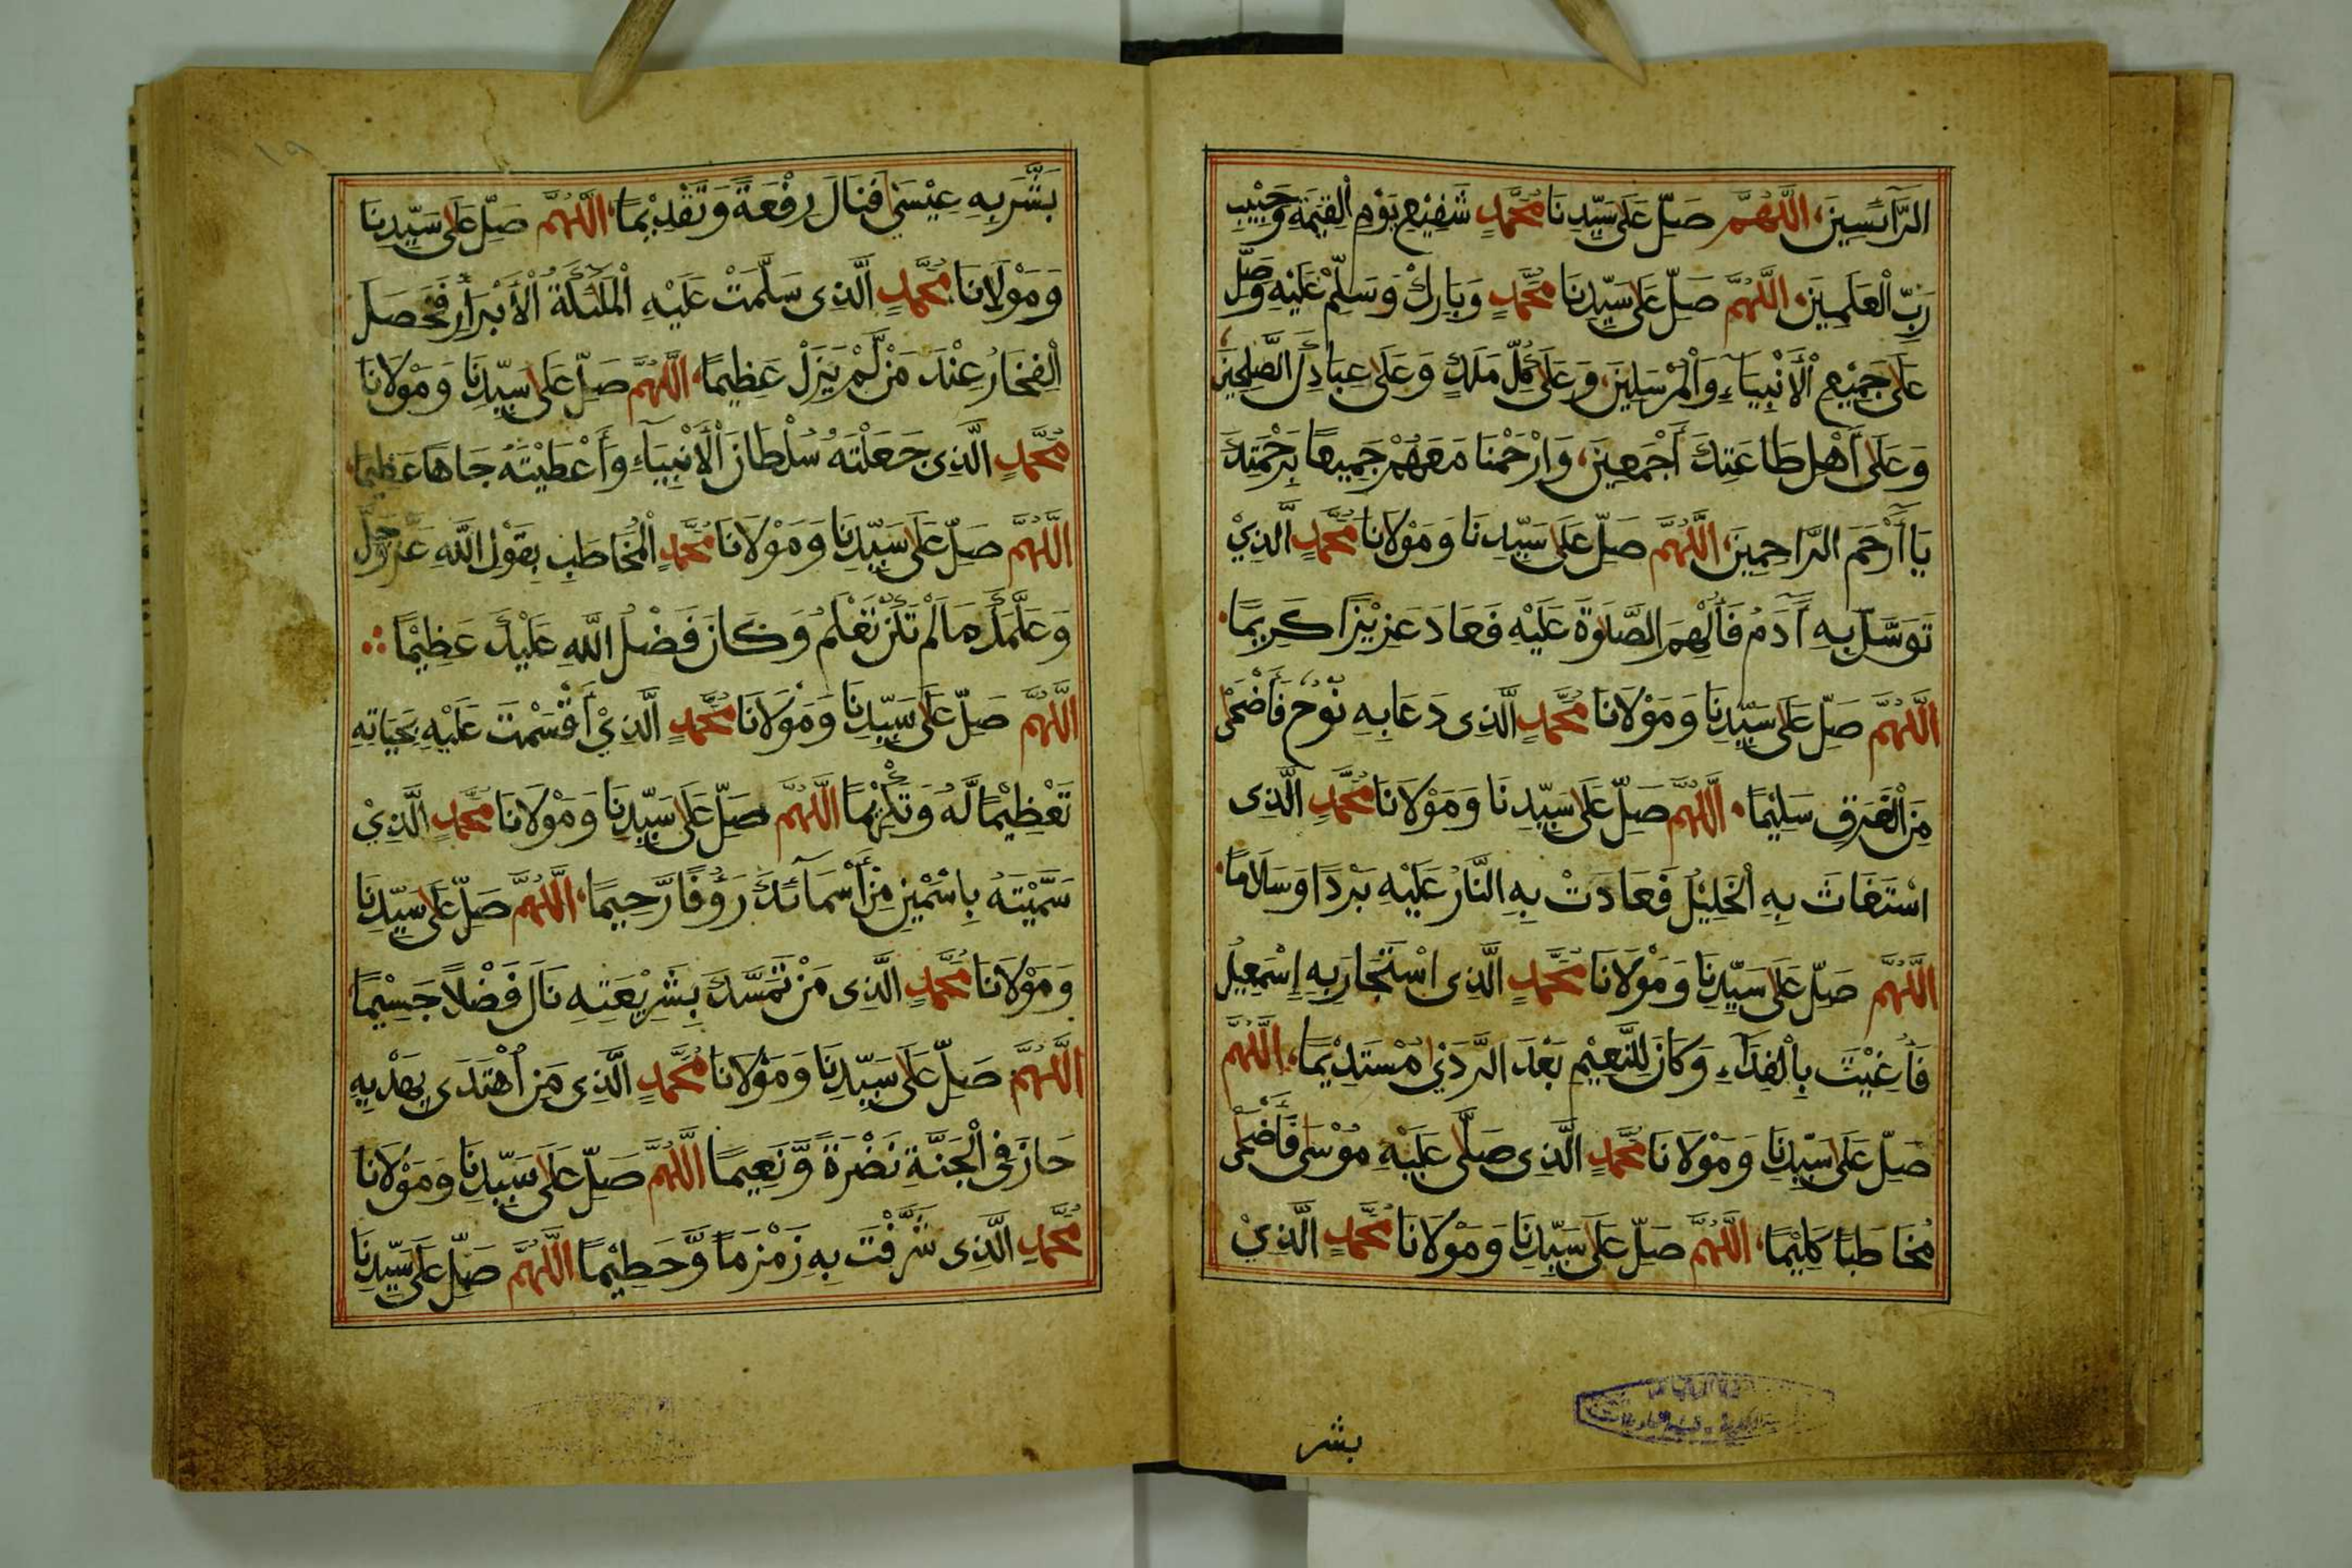 الرَّآئِسِينَ، اللَّهُمَّ صَلِّ عَلَى سَيِّدِنَا مُحَمَّدٍ شَفِيْعِ يَوْمِ الْقِيٰمَةِ وَحَبِيْبِ
رَبِّ الْعٰلَمِينَ، اللَّهُمَّ صَلِّ عَلَى سَيِّدِنَا مُحَمَّدٍ وَبَارِكْ وَسَلِّمْ عَلَيْهِ وَصَلِّ
عَلَى جَمِيْعِ الْأَنْبِيَآءِ وَالْمُرْسَلِينَ، وَعَلَى كُلِّ مَلَكٍ وَعَلَى عِبَادِكَ الصّٰلِحِينَ
وَعَلَى أَهْلِ طَاعَتِكَ أَجْمَعِينَ، وَارْحَمْنَا مَعَهُمْ جَمِيعًا بِرَحْمَتِكَ
يَا أَرْحَمَ الرَّاحِمِينَ، اللَّهُمَّ صَلِّ عَلَى سَيِّدِنَا وَمَوْلَانَا مُحَمَّدٍ الَّذِيْ
تَوَسَّلَ بِهِ آدَمُ فَأُلْهِمَ الصَّلٰوةَ عَلَيْهِ فَعَادَ عَزِيْزًا كَرِيْمًا
اللَّهُمَّ صَلِّ عَلَى سَيِّدِنَا وَمَوْلَانَا مُحَمَّدٍ الَّذِى دَعَا بِهِ نُوْحٌ فَأَضْحَى
مِنَ الْغَرَقِ سَلِيْمًا اللَّهُمَّ صَلِّ عَلَى سَيِّدِنَا وَمَوْلَانَا مُحَمَّدٍ الَّذِى
اسْتَغَاثَ بِهِ الْخَلِيْلُ فَعَادَتْ بِهِ النَّارُ عَلَيْهِ بَرْدًا وَسَلَامًا
اللَّهُمَّ صَلِّ عَلَى سَيِّدِنَا وَمَوْلَانَا مُحَمَّدٍ الَّذِى اسْتَجَارَ بِهِ إِسْمٰعِيْلُ
فَأُغِيْثَ بِالْفِدَآءِ وَكَانَ لِلنَّعِيْمِ بَعْدَ الرَّدٰى مُسْتَدِيْمًا، اللَّهُمَّ
صَلِّ عَلَى سَيِّدِنَا وَمَوْلَانَا مُحَمَّدٍ الَّذِى صَلَّى عَلَيْهِ مُوْسَى فَأَضْحَى
مُخَاطَبًا كَلِيْمًا، اللَّهُمَّ صَلِّ عَلَى سَيِّدِنَا وَمَوْلَانَا مُحَمَّدٍ الَّذِيْ
بشر
١٩
بَشَّرَ بِهِ عِيْسٰى فَنَالَ رِفْعَةً وَتَقْدِيْمًا، اللَّهُمَّ صَلِّ عَلَى سَيِّدِنَا
وَمَوْلَانَا مُحَمَّدٍ الَّذِى سَلَّمَتْ عَلَيْهِ الْمَلٰئِكَةُ الْأَبْرَارُ فَحَصَلَ
الْفَخَارُ عِنْدَ مَنْ لَّمْ يَزَلْ عَظِيمًا، اللَّهُمَّ صَلِّ عَلَى سَيِّدِنَا وَمَوْلَانَا
مُحَمَّدٍ الَّذِى جَعَلْتَهُ سُلْطَانَ الْأَنْبِيَآءِ وَأَعْطَيْتَهُ جَاهًا عَظِيمًا
اللَّهُمَّ صَلِّ عَلَى سَيِّدِنَا وَمَوْلَانَا مُحَمَّدٍ الْمُخَاطَبِ بِقَوْلِ اللَّهِ عَزَّ وَجَلَّ
وَعَلَّمَكَ مَا لَمْ تَكُنْ تَعْلَمُ وَكَانَ فَضْلُ اللَّهِ عَلَيْكَ عَظِيْمًا
اللَّهُمَّ صَلِّ عَلَى سَيِّدِنَا وَمَوْلَانَا مُحَمَّدٍ الَّذِيْ أَقْسَمْتَ عَلَيْهِ بِحَيَاتِهِ
تَعْظِيْمًا لَّهُ وَتَكْرِيْمًا اللَّهُمَّ صَلِّ عَلَى سَيِّدِنَا وَمَوْلَانَا مُحَمَّدٍ الَّذِيْ
سَمَّيْتَهُ بِاسْمَيْنِ مِنْ أَسْمَآئِكَ رَؤُفًا رَّحِيمًا، اللَّهُمَّ صَلِّ عَلَى سَيِّدِنَا
وَمَوْلَانَا مُحَمَّدٍ الَّذِى مَنْ تَمَسَّكَ بِشَرِيْعَتِهِ نَالَ فَضْلًا جَسِيْمًا
اللَّهُمَّ صَلِّ عَلَى سَيِّدِنَا وَمَوْلَانَا مُحَمَّدٍ الَّذِى مَنِ اهْتَدَى بِهَدْيِهِ
حَازَ فِى الْجَنَّةِ نَضْرَةً وَّنَعِيمًا اللَّهُمَّ صَلِّ عَلَى سَيِّدِنَا وَمَوْلَانَا
مُحَمَّدِ الَّذِى شَرَّفْتَ بِهِ زَمْزَمًا وَّحَطِيْمًا اللَّهُمَّ صَلِّ عَلَى سَيِّدِنَا